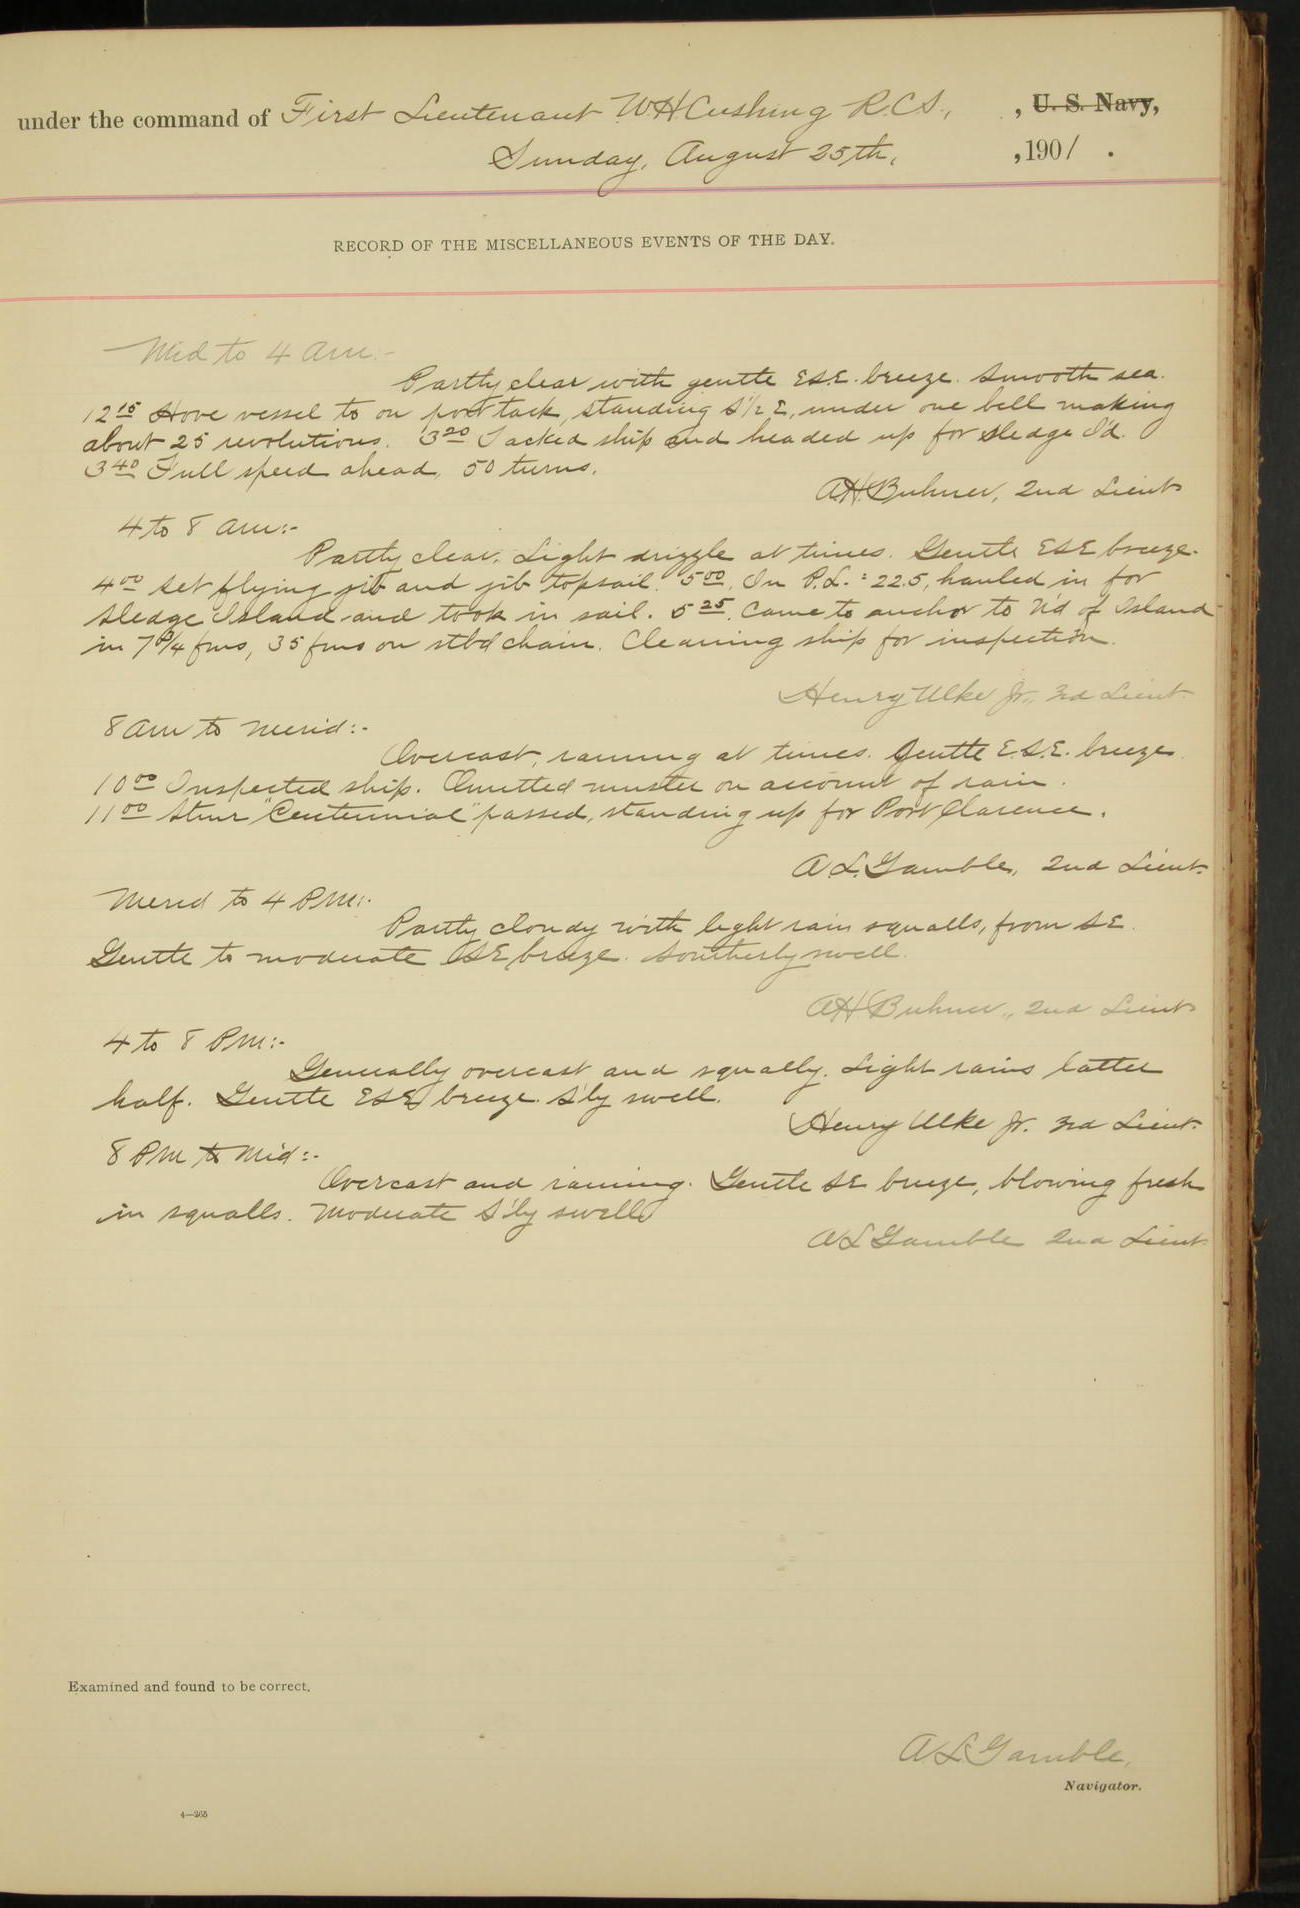 under the command of First Lieutenant W.H. Cushing R.C.S., , U. S. Navy,
Sunday, August 25th, , 1901 .
RECORD OF THE MISCELLANEOUS EVENTS OF THE DAY.
Mid to 4 am:-
Partly clear with gentle ESE. breeze. Smooth sea.
12 15 Hove vessel to on port tack, standing S 1/2 E, under one bell making
about 25 revolutions. 3 20 Tacked ship and headed up for Sledge I'd.
3 40 Full speed ahead, 50 turns.
A.H. Buhner, 2nd Lieut.
4 to 8 am:-
Partly clear. Light drizzle at times. Gentle ESE breeze.
4 00 Set flying jib and jib topsail. 5 00, On P.L. = 22.5, hauled in for
Sledge Island and took in sail. 5 25. Came to anchor to N'd of Island
in 7 3/4 fms, 35 fms on stbd chain. Cleaning ship for inspection.
Henry Ulke Jr., 3rd Lieut.
8 am to merid:-
Overcast, raining at times. Gentle E.S.E. breeze.
10 00 Inspected ship. Omitted muster on account of rain.
11 00 Stmr "Centennial" passed, standing up for Port Clarence.
A.L. Gamble, 2nd Lieut.
Merid to 4 P.M:-
Partly cloudy with light rain squalls, from SE.
Gentle to moderate ESE breeze. Southerly swell.
A.H. Buhner, 2nd Lieut.
4 to 8 P.M:-
Generally overcast and squally. Light rains latter
half. Gentle ESE breeze. S'ly swell.
Henry Ulke Jr. 3rd Lieut.
8 P.M to Mid:-
Overcast and raining. Gentle SE breeze, blowing fresh
in squalls. Moderate S'ly swell.
A.L. Gamble 2nd Lieut.
Examined and found to be correct.
A.L. Gamble,
Navigator.
4—265